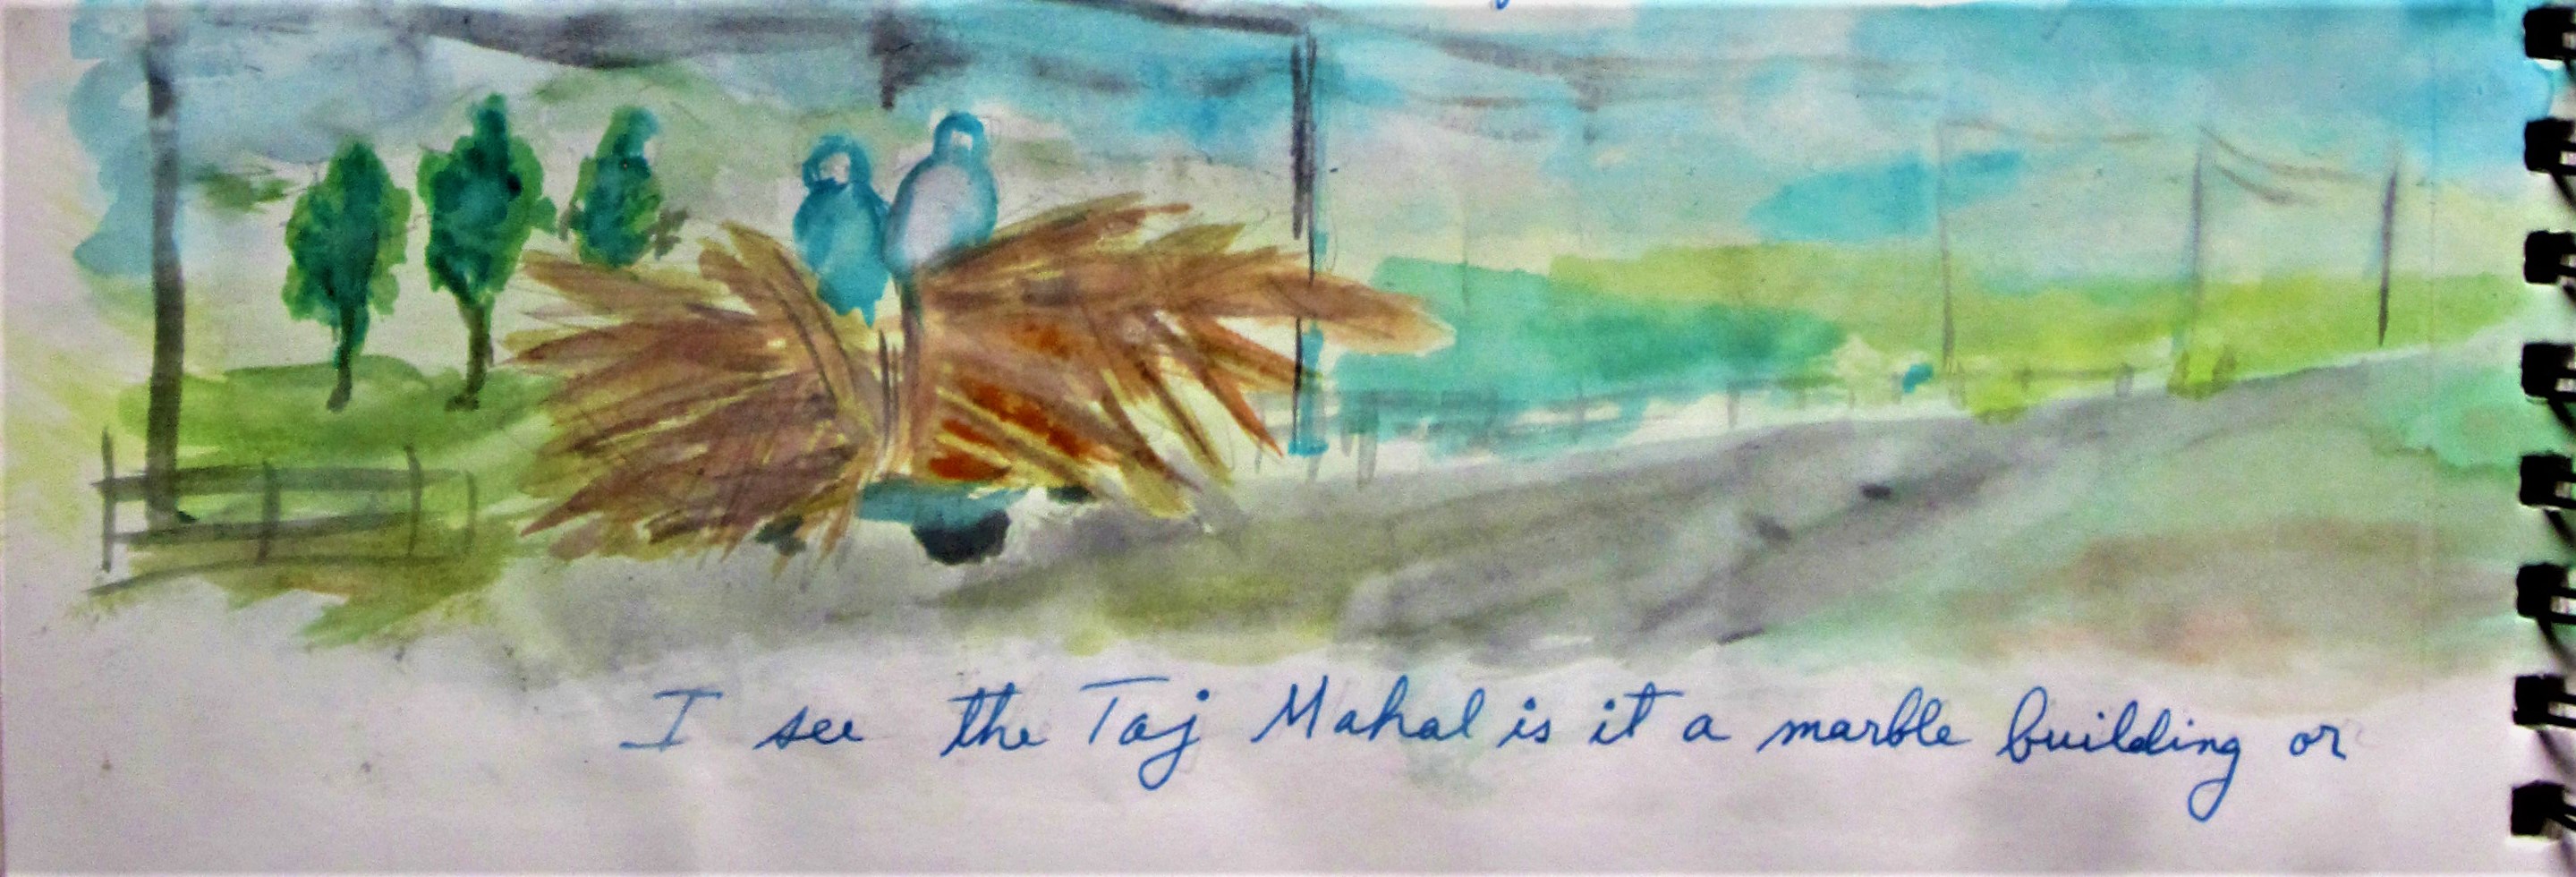 I see the Taj Mahal is it a marble building or